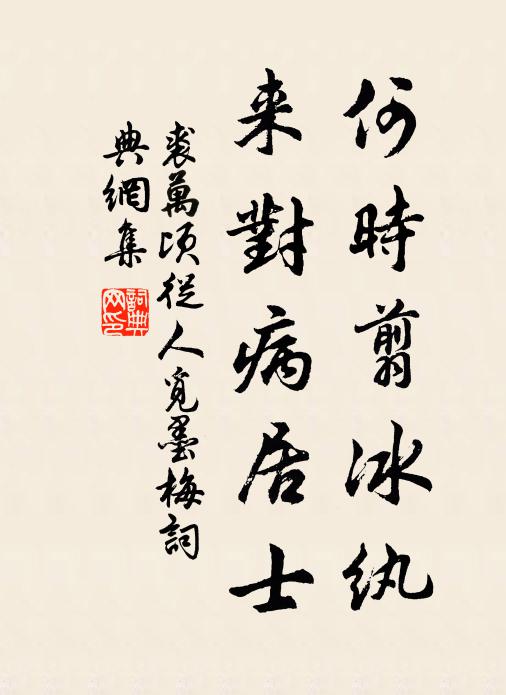 何時翦冰紈
来對病居士
裘萬頃從人覓墨梅詞
典網集
詞典网印